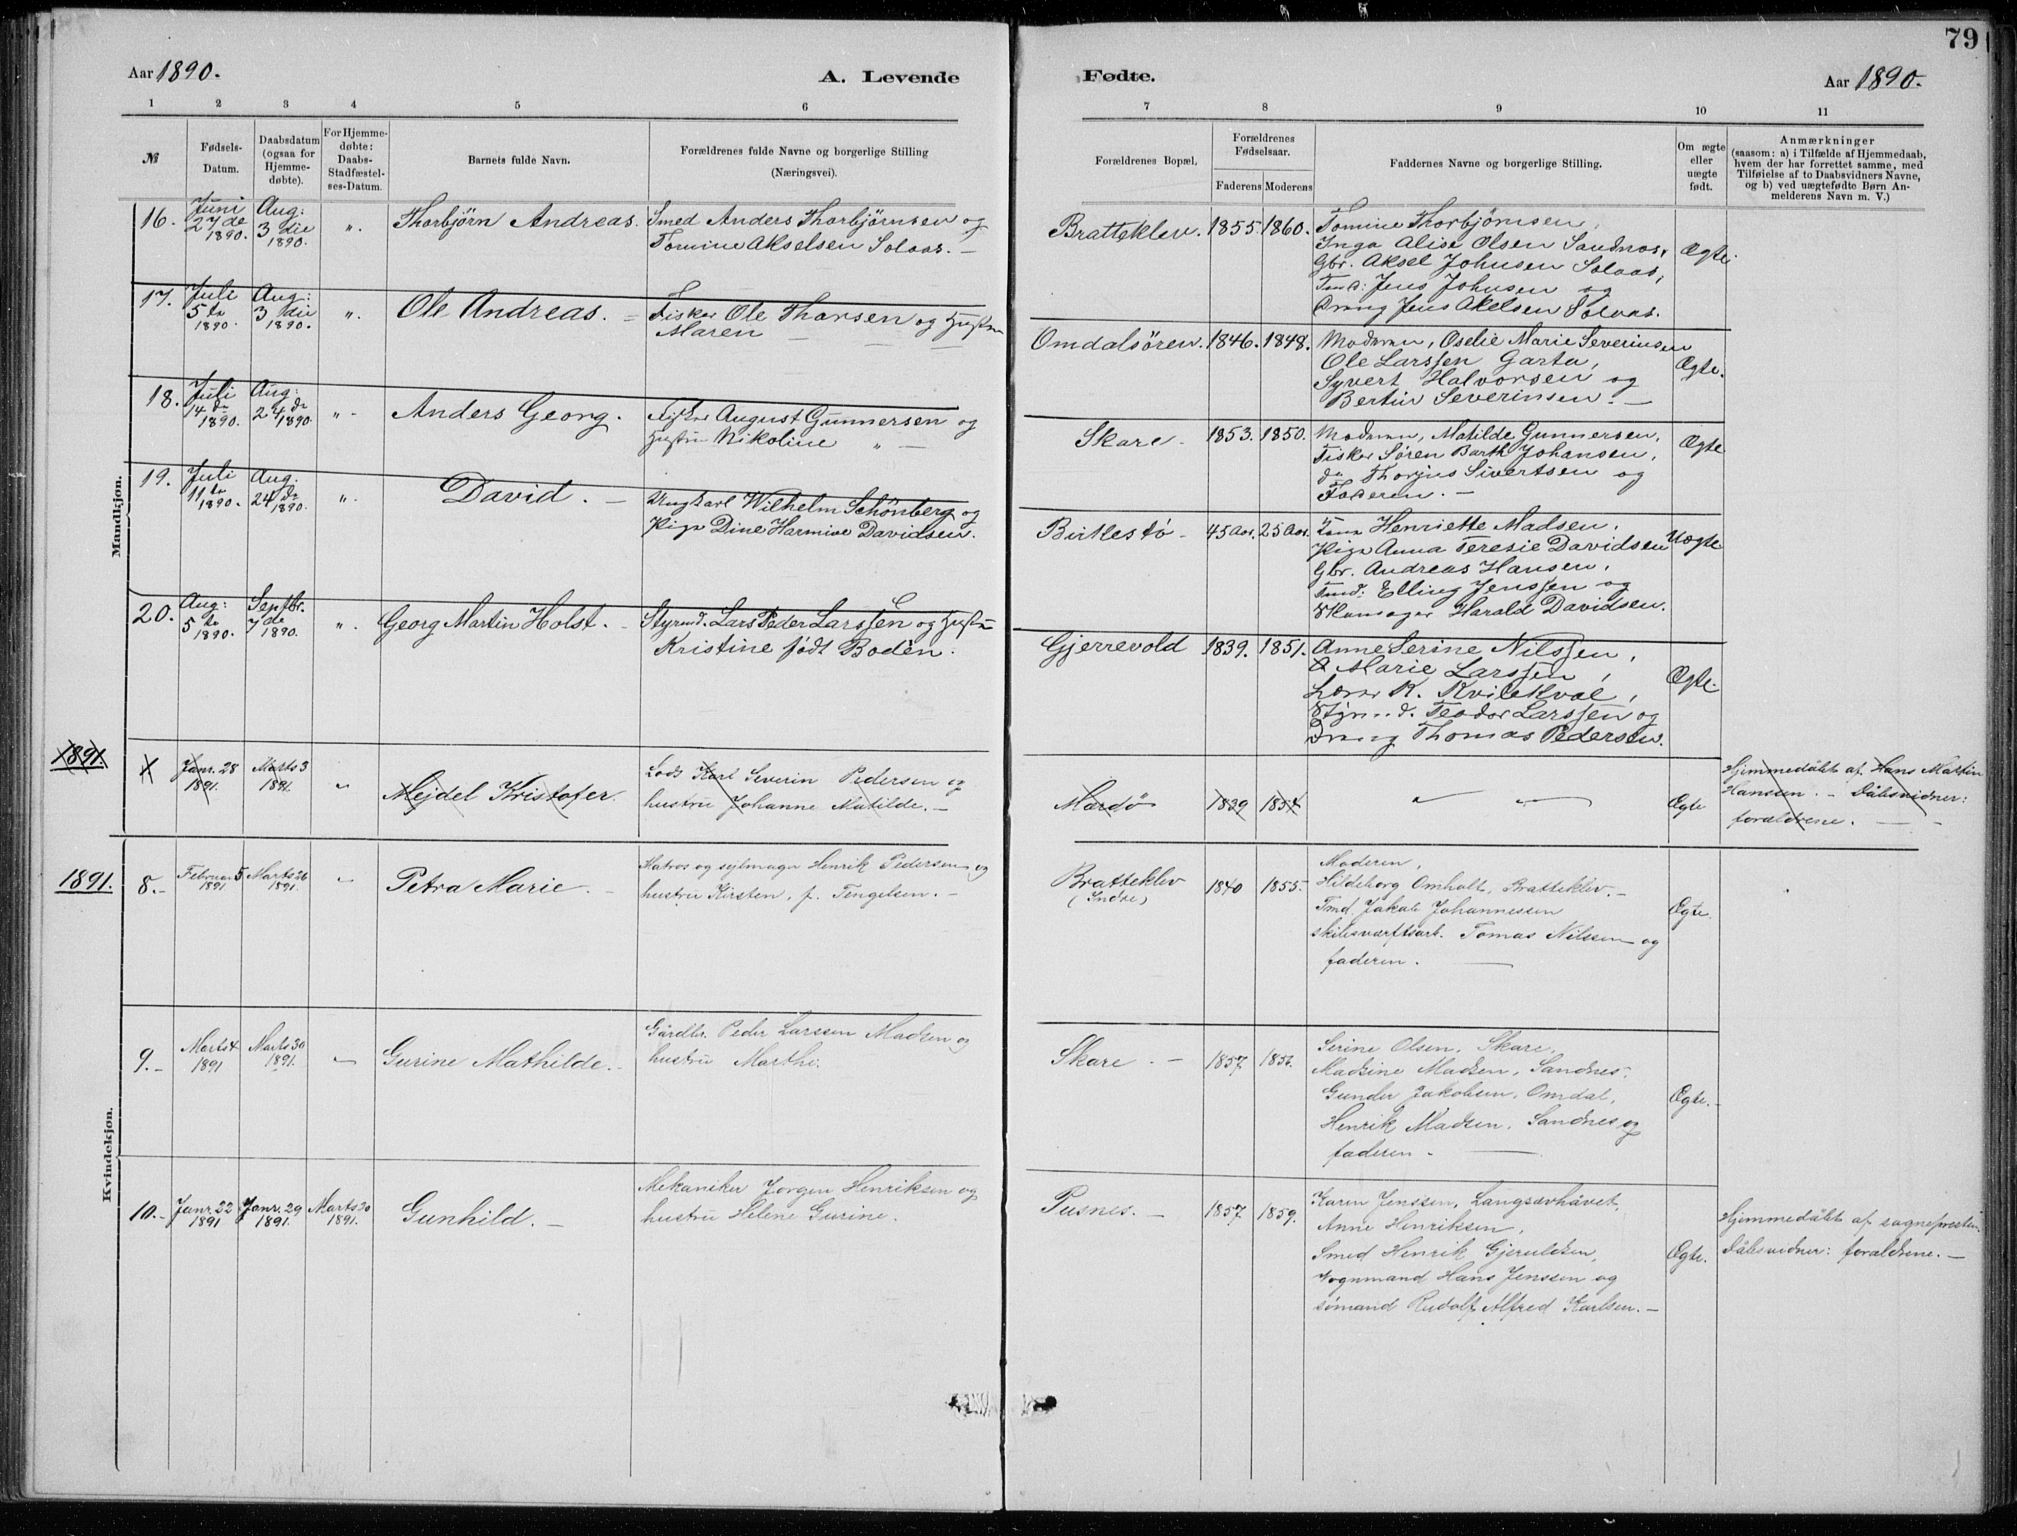 79
Aar 1890.
A. Levende
Fødte.
Aar 1890.
1 2 3 4 5 6 7 8 9 10 11
№
Fødsels-
Datum.
Daabsdatum
(ogsaa for
Hjemme-
døbte).
For Hjemme-
døbte:
Daabs-
Stadfæstel-
ses-Datum.
Barnets fulde Navn.
Forældrenes fulde Navne og borgerlige Stilling
(Næringsvei).
Forældrenes Bopæl.
Forældrenes
Fødselsaar.
Faderens Moderens
Faddernes Navne og borgerlige Stilling.
Om ægte
eller
uægte
født.
Anmærkninger
(saasom: a) i Tilfælde af Hjemmedaab,
hvem der har forrettet samme, med
Tilføielse af to Daabsvidners Navne,
og b) ved uægtefødte Børn An-
melderens Navn m. V.)
Mandkjøn.
16.
Juni
27de
1890.
Aug:
3die
1890.
".
Thorbjørn Andreas.
Smed Anders Thorbjørnsen og
Tomine Akselsen Solaas. –
Bratteklev.
1855.
1860.
Tomine Thorbjørnsen,
Inga Alise Olsen Sandnas,
Gbr. Aksel Johnsen Solaas,
Tmd: Jens Johnsen og
Dreng Jens Akelsen Solaas.
Ægte.
17.
Juli
5te
1890.
Aug:
3die
1890.
".
Ole Andreas.
Fisker Ole Thorsen og Hustru
Maren – – –
Omdalsören.
1846.
1848.
Moderen, Oselie Marie Severinsen
Ole Larssen Garta,
Syvert Halvorsen og
Bertin Severinsen. –
Ægte.
18.
Juli
14de
1890.
Aug:
24de
1890.
".
Anders Georg.
Fisker August Gunnersen og
Hustru Nikoline " –
Skare –
1853.
1850.
Moderen, Matilde Gunnersen,
Fisker Søren Barth Johansen,
do Thorjus Sivertsen og
Faderen. –
Ægte
19.
Juli
11te
1890.
Aug.
24de
1890.
".
David. –
Ungkarl Wilhelm Schönberg og
Pige Dine Harmine Davidsen.
Birkestø –
45 Aar.
25 Aar.
Kone Henriette Madsen,
Pige Anna Teresie Davidsen
Gbr. Andreas Hansen,
Tmd: Elling Jenssen og
Skomager Harald Davidsen.
Uægte
20.
Aug:
5te
1890.
Septbr.
7de
1890.
".
Georg Martin Holst. –
Styrmd. Lars Peder Larssen og Hustru
Kristine født Bodèn.
Gjerrevold
1839.
1851.
Anne Serine Nilssen,
Marie Larssen,
Lærer K. Kvilekval,
Styrmd. Teodor Larssen og
Dreng Thomas Pedersen.
Ægte.
1891.
Janr. 28
1891.
Marts 3
1891.
"
Mejdel Kristofer.
Lods Karl Severin Pedersen og
hustru Johanne Matilde. –
Mardø
1839
1854
" "
Ægte
Hjemmedøbt af Hans Martin
Hanssen. – Dåbsvidner:
forældrene. –
Kvindekjøn.
1891.
8. –
Februar 5
1891
Marts 26
1891.
"
Petra Marie –
Matros og sejlmager Henrik Pedersen og
hustru Kirsten, f. Tengelsen. –
Bratteklev
(Indre)
1840
1855.
Moderen,
Hildeborg Omholt, Bratteklev. –
Tmd. Jakob Johannessen
skibsværftsarb. Tomas Nilssen og
faderen. –
Ægte.
9. –
Marts 4
1891
Marts 30
1891.
"
Gurine Mathilde. –
Gårdbr. Peder Larssen Madsen og
hustru Marthe.
Skare. –
1857
1856.
Serine Olsen, Skare,
Madsine Madsen, Sandnes,
Gunder Jakobsen, Omdal,
Henrik Madsen, Sandnes og
faderen. –
Ægte. –
10. –
Janr. 22
1891
Janr. 29
1891.
Marts 30
1891.
Gunhild. –
Mekaniker Jørgen Henriksen og
hustru Helene Gurine.
Pusnes. –
1857
1859.
Karen Jenssen, Langsævhávet,
Anne Henriksen,
Smed Henrik Gjeruldsen,
Vognmand Hans Jenssen og
sømand Rudolf Alfred Karlsen. –
Ægte.
Hjemmedøbt af sognepresten.
Dåbsvidner: forældrene. –